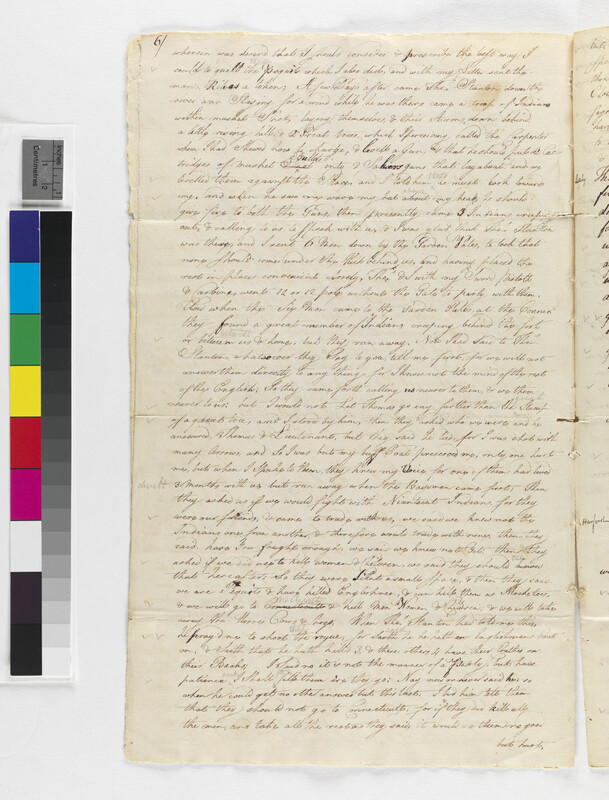 6/
wherein was desired that I would consider & prescribe the best way I
could to quell the Pequit which I also did, and with my Letter sent the
man Ribas a token; A few Days after came Tho. Stanton down the
river and Staying for a wind while he was there came a troop of Indians
within musket Shot, laying themselves & their Arms down behind
a little rising hill & 2 Great trees, which I perceiving called the carpenter
whom I had Shown how to charge, & levell a Gun, & that he should put 2 car-
tridges of musket bullets into 2 Sakers guns that lay about and we
levelled them against the Place, and I told him he must look toward
me, and when he saw me wave my hat above my head he should
give fire to both the Guns, then presently came 3 Indians creeping
out, & calling to us to speak with us, & I was glad that Tho Stanton
was there, and I sent 6 Men down by the Garden Pales to look that
none should come under the hill behind us, and having placed the
rest in places convenient closely, Thos & I with my Sword pistoll
& carbine, went 10 or 12 pole without the Gate to parly with them.
And when the Six Men came to the Garden Pales, at the Corner
they found a great number of Indians creeping behind the fort
or between us & home, but they ran away. Now I had Said to Tho
Stanton, whatsoever they Say to you, tell me first, for we will not
answer them directly to any thing, for I know not the mind of the rest
of the English; So they came forth calling us nearer to them, & we them
nearer to us: but I would not let Thomas go any further than the Stump
of a great tree, and I stood by him, then they asked who we were and he
answered, Thomas & Lieutenant, but they said he lied, for I was shot with
many Arrows, and so I was but my buff Coat preserved me, only one hurt
me, but when I Spake to them, they knew my Voice for one of them had lived
3 months with us but ran away when the Bay men came first; Then
they asked us if we would fight with Niantecut Indians, for they
were our friends, & came to trade with us, we said we knew not the
Indians one from another, & therefore would trade with none, then they
said have you fought enough, we said we knew not yet, then they
asked if we did use to kill women & Children, we said they should
that hereafter. So they were Silent a small space, & then they said
we are Pequots & have killed Englishmen, & can kill them as Musketoes,
& we will go to Connecticutt & kill Men, Women, & Children, & we will take
away the Horses Cows, & hogs. When Tho. Stanton had told me this,
he pray'd me to shoot the rogue, for saith he he hath an Englishmans coat
on, & saith that he hath killed 3, & these other 4 have their Cloths on
their Backs; I Said no it is not the manner of a parly, but have
patience, I Shall fitt them e're they go: Nay now or never said he; so
when he could get no other answer but this last, I bid him tell them
that they should not go to Connecticutt, for if they did kill all
the men, and take all the rest as they said, it would do them no good
but hurt,